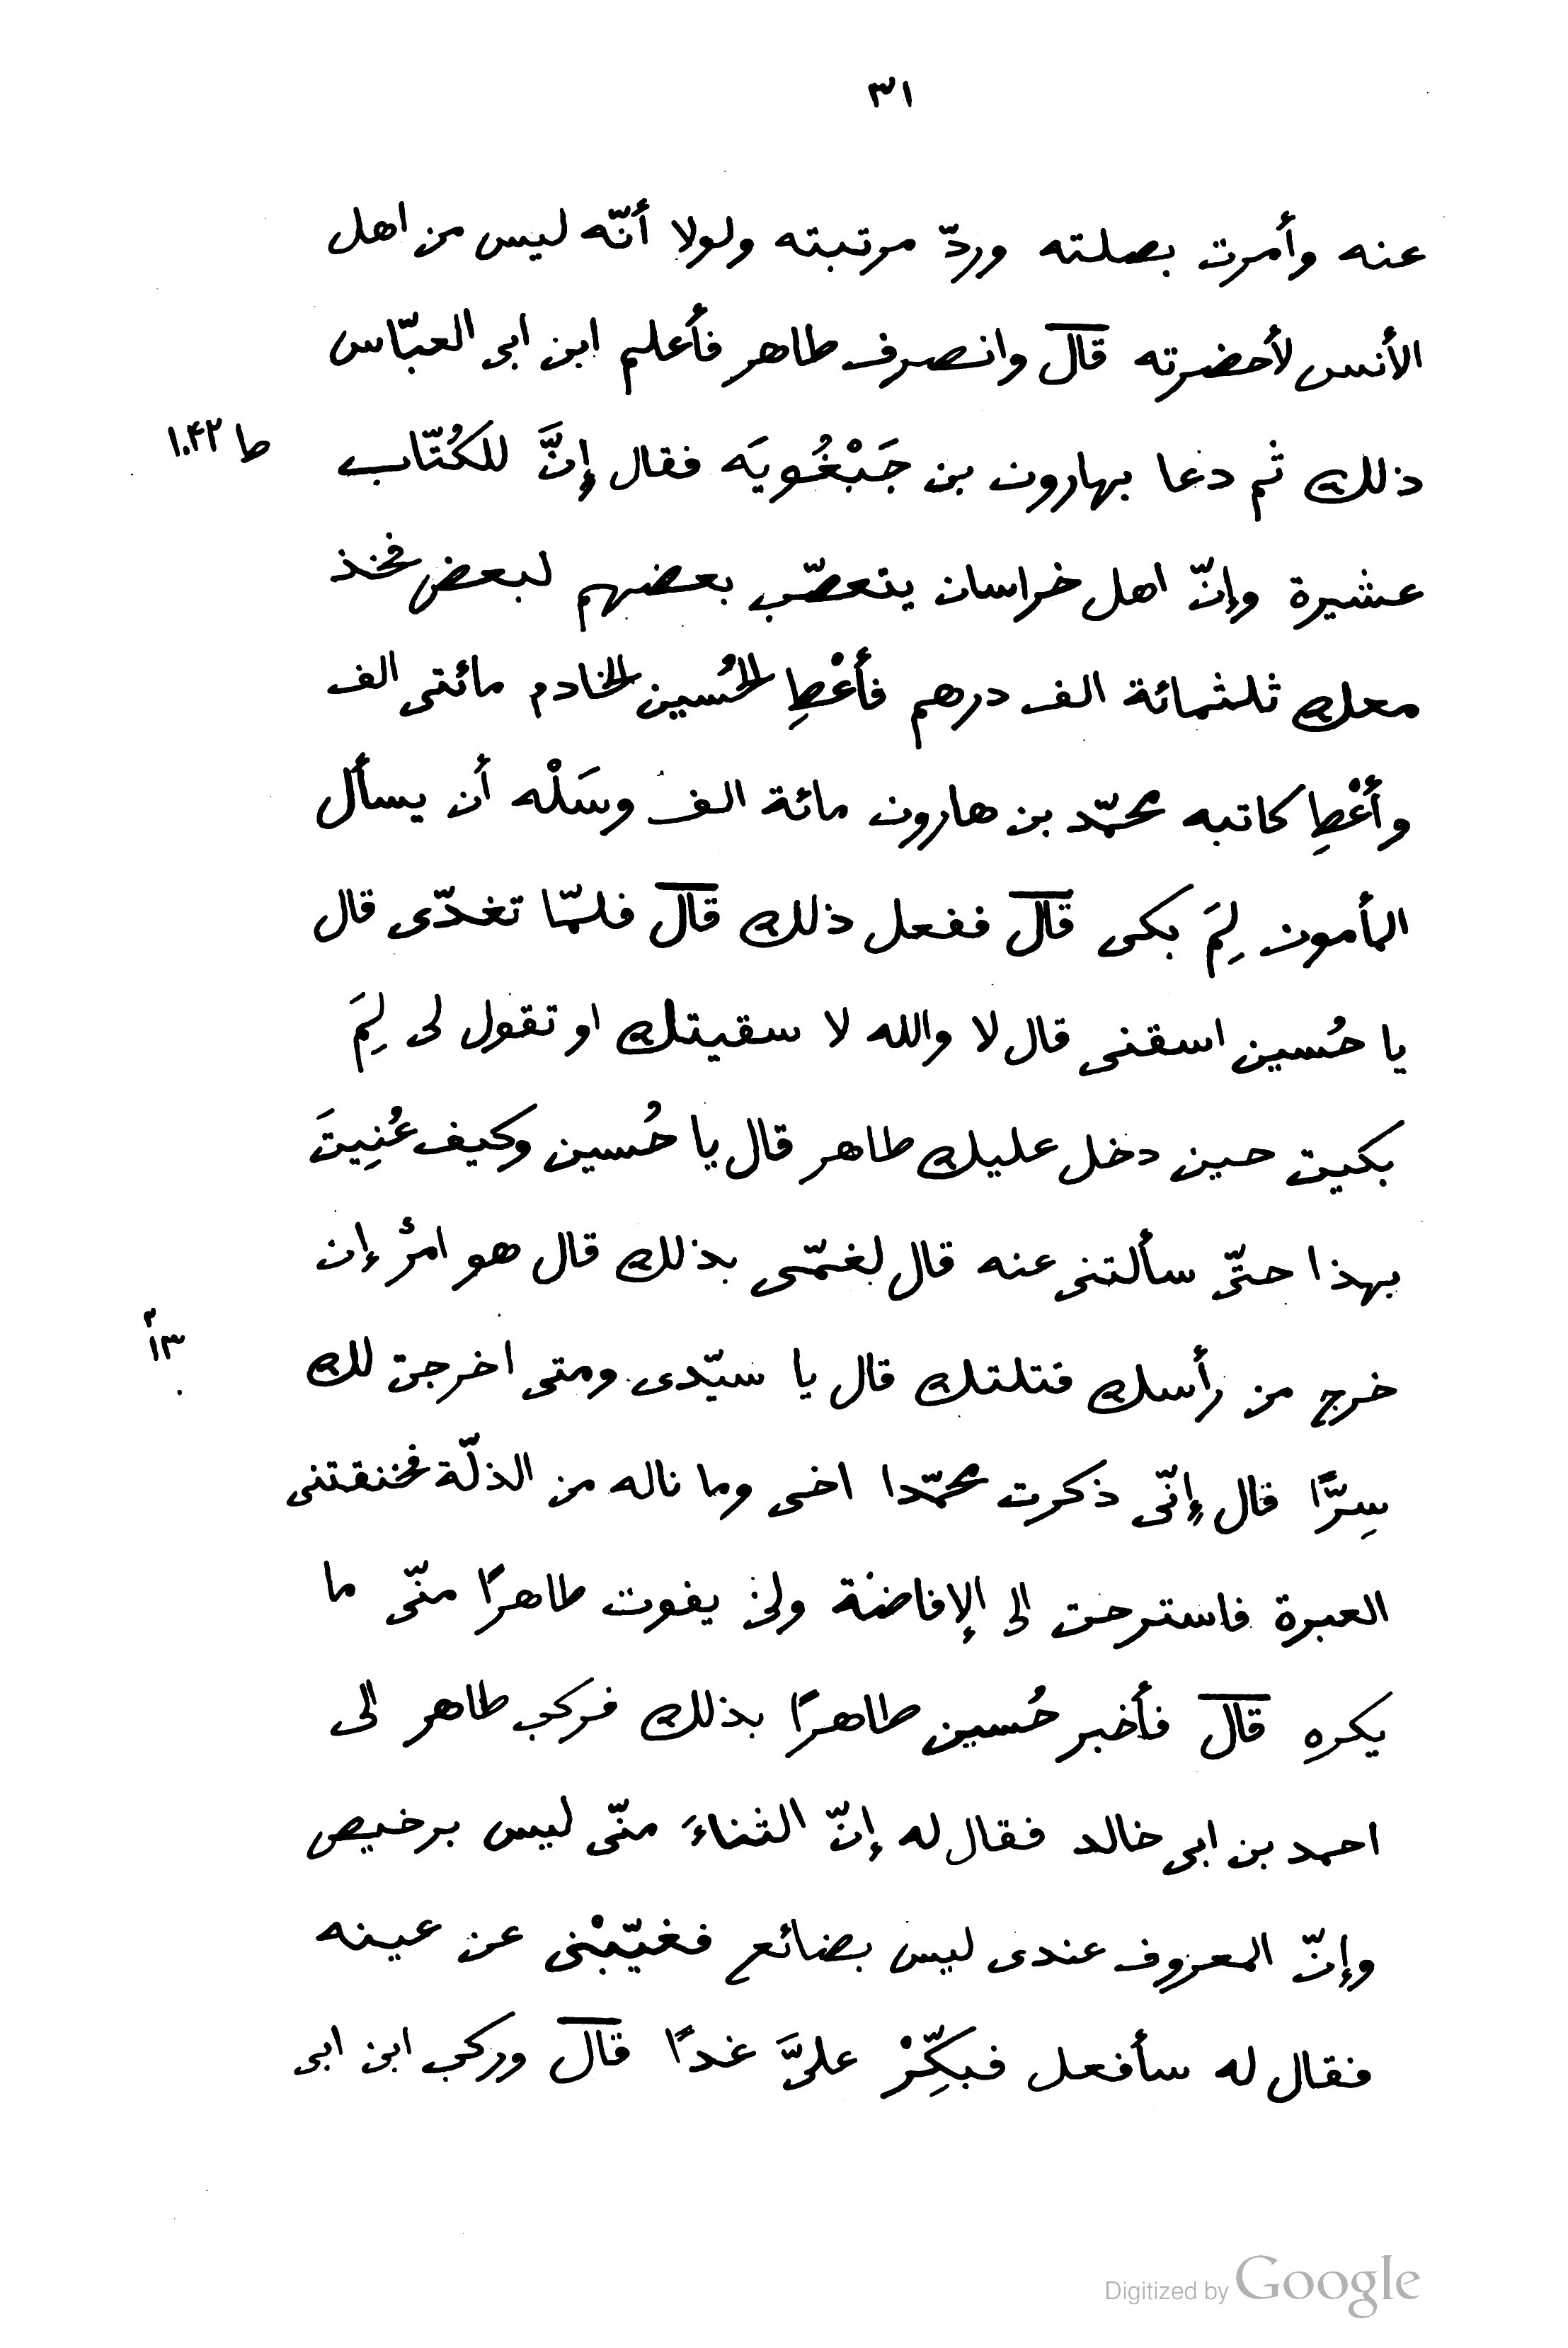 ٣١
عنه وأمرت بصلته وردّ مرتبته ولولا أنّه ليس من اهل
الأنس لأحضرته قال وانصرف طاهر فأعلم ابن ابى العبّاس
ذلك ثم دعا بهارون بن جَبْغُويَه فقال إنَّ للكُتّاب
ط ١٠٤٢
عشيرة وإنّ اهل خراسان يتعصّب بعضهم لبعض فخذ
معك ثلثمائة الف درهم فأعْطِ الحُسين الخادم مائتى الف
وأعْطِ كاتبه محمّد بن هارون مائة الف وسَلْه أن يسأل
المأمون لِمَ بكى قال ففعل ذلك قال فلمّا تغدّى قال
يا حُسين اسقنى قال لا والله لا سقيتك او تقول لى لِمَ
بكيت حين دخل عليك طاهر قال يا حُسين وكيف عُنِيتَ
بهذا حتّى سألتنى عنه قال لغمّى بذلك قال هو امرٌ إن
خرج من رأسك قتلتك قال يا سيّدى ومتى اخرجت لك
سِرًّا قال إنّى ذكرت محمّدا اخى وما ناله من الذلّة فخنقتنى
العبرة فاسترحت الى الإفاضة ولن يفوت طاهرًا منّى ما
يكره قال فأخبر حُسين طاهرًا بذلك فركب طاهر الى
احمد بن ابى خالد فقال له إنّ الثناءَ منّى ليس برخيص
وإنّ المعروف عندى ليس بضائع فغيّبْنى عن عينه
فقال له سأفعل فبكِّرْ علىَّ غدًا قال وركب ابن ابى
Digitized by Google